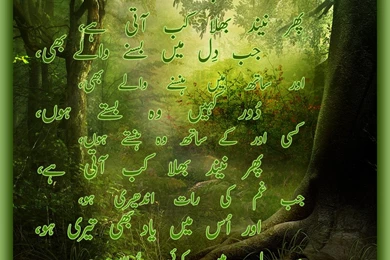 پھر نیند بھلا کب آتی ہے،
جب دِل میں بسنے والے بھی،
اور ساتھ میں ہنسنے والے بھی،
دُور کہیں وہ بستے ہوں،
کسی اور کے ساتھ وہ ہنستے ہوں،
پھر نیند بھلا کب آتی ہے،
جب غم کی رات اندھیری ہو،
اور اُس میں یاد بھی تیری ہو،